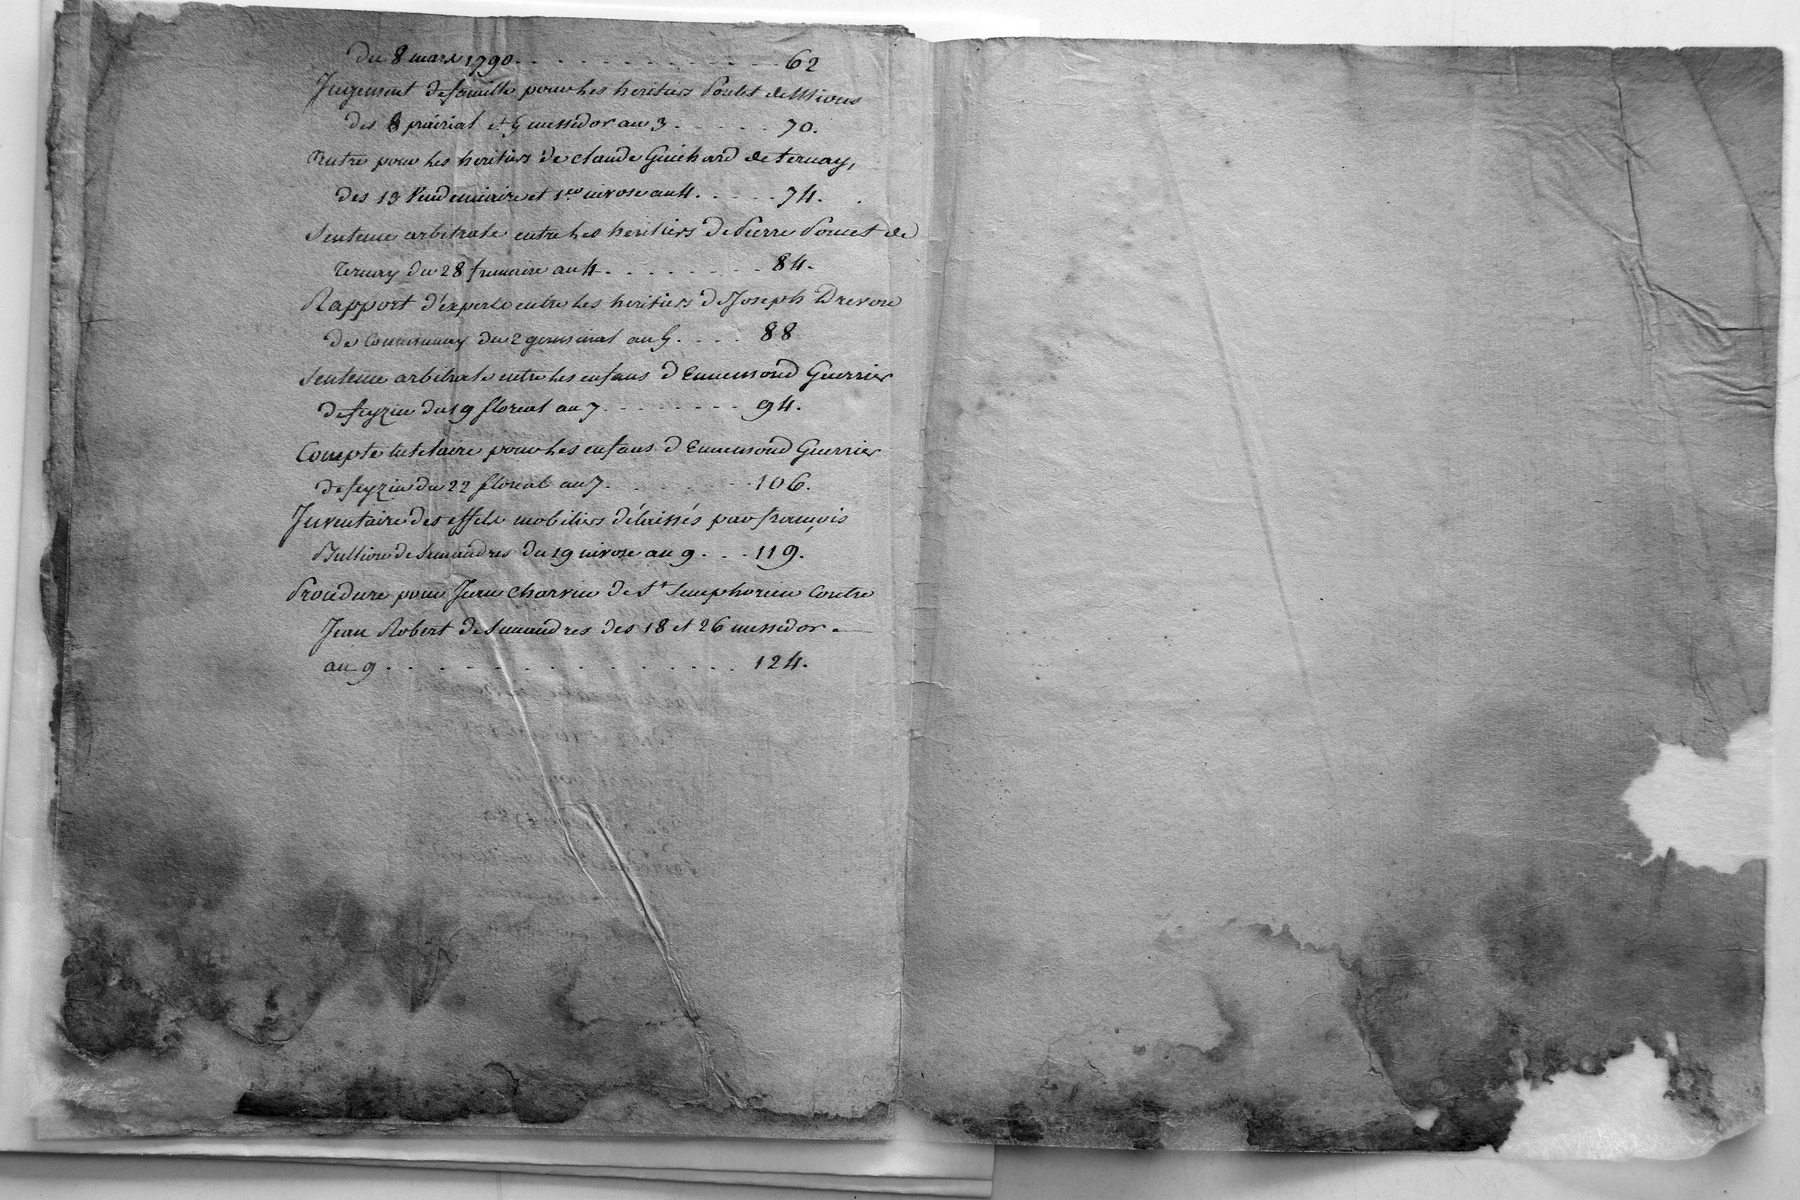 du 8 mars 1790 . . . . . . . . . . . . 62
Jugement de famille pour les heritiers Poulet de Mions
des 8 prairial et 5 messidor an 3 . . . . . 70.
Autre pour les heritiers de claude Guichard de ternay,
des 13 Vendemiaire et 1er nivose an 4. . . . . 74.
Sentence arbitrale entre les heritiers de Pierre Poncet de
Ternay du 28 frimaire an 4 . . . . . . . . 84.
Rapport d'experts entre les heritiers de Joseph Drevon
de Communay du 2 germinal an 5. . . . 88
Sentence arbitrale entre les enfans d'Ennemond Guerrier
de feyzin du 19 floreal an 7 . . . . . . . . 94.
Compte tutelaire pour les enfans d'Ennemond Guerrier
de feyzin du 22 floreal an 7. . . . . . . . 106.
Inventaire des effets mobiliers délaissés par françois
Bullion de Simandres du 19 nivose an 9 . . . 119.
Procedure pour Jean Charvin de St. Simphorien Contre
Jean Robert de Simandres des 18 et 26 messidor
an 9 . . . . . . . . . . . . . . . . 124.